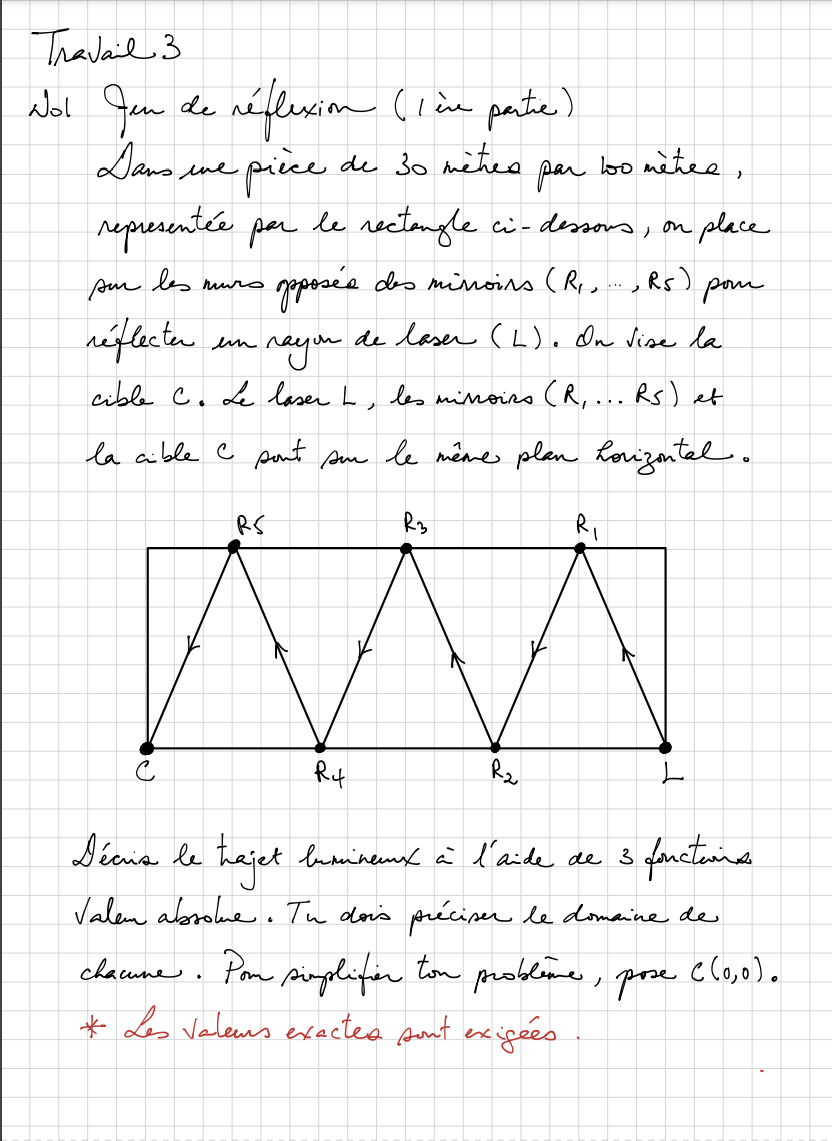 Travail 3
No1 Jeu de réflexion (1 ère partie)
Dans une pièce de 30 mètres par 100 mètres,
representée par le rectangle ci-dessous, on place
sur les murs opposés des mirroirs (R1, ..., R5) pour
réflecter un rayon de laser (L). On vise la
cible C. Le laser L, les mirroirs (R1 ... R5) et
la cible C sont sur le même plan horizontal.
R5 R3 R1
C R4 R2 L
Décris le trajet lumineux à l'aide de 3 fonctions
Valeur absolue. Tu dois préciser le domaine de
chacune. Pour simplifier ton problème, pose C(0,0).
* Les valeurs exactes sont exigées.